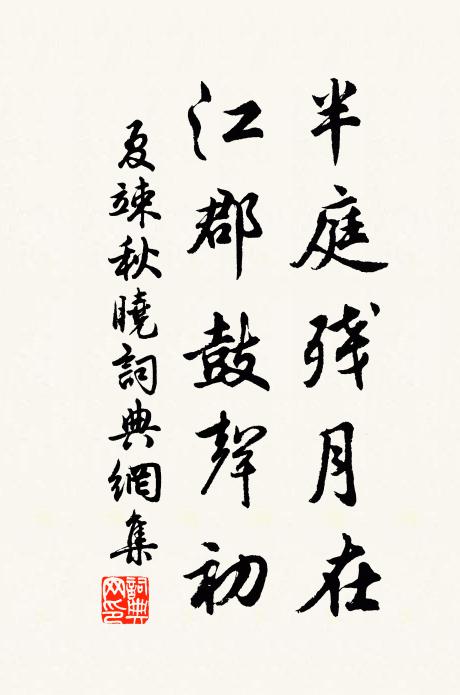 半庭残月在
江郡鼓聲初
夏竦秋曉詞典網集
詞典网印